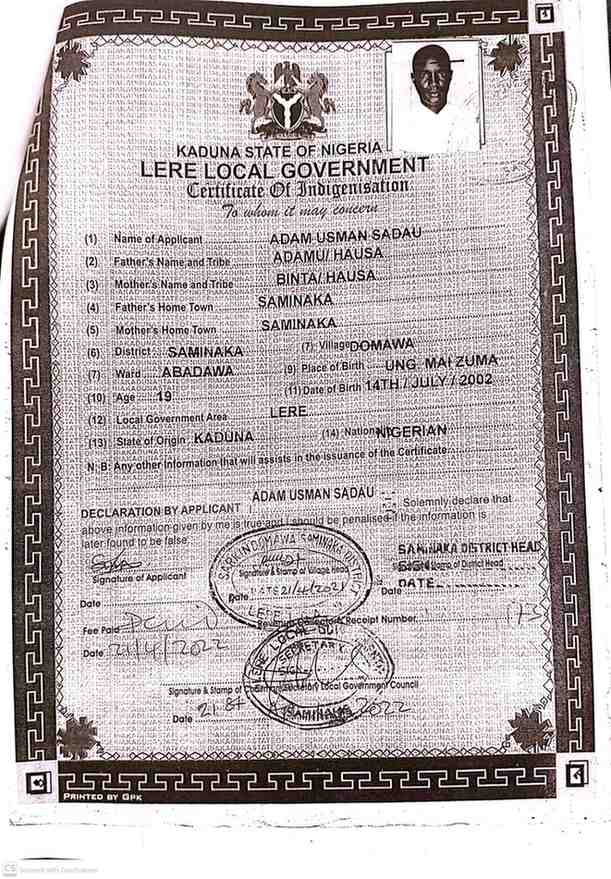 KADUNA STATE OF NIGERIA
LERE LOCAL GOVERNMENT
Certificate Of Indigenisation
To whom it may concern
(1) Name of Applicant ADAM USMAN SADAU
(2) Father's Name and Tribe ADAMU/ HAUSA
(3) Mother's Name and Tribe BINTA/ HAUSA
(4) Father's Home Town SAMINAKA
(5) Mother's Home Town SAMINAKA
(6) District SAMINAKA (7) Village DOMAWA
(7) Ward ABADAWA (9) Place of Birth UNG. MAI ZUMA
(10) Age 19 (11) Date of Birth 14TH / JULY / 2002
(12) Local Government Area LERE
(13) State of Origin KADUNA (14) National NIGERIAN
N.B: Any other information that will assists in the issuance of the Certificate
DECLARATION BY APPLICANT I ADAM USMAN SADAU Solemnly declare that
above information given by me is true and I should be penalised if the information is
later found to be false
SARKIN DOMAWA SAMINAKA DISTRICT
SAMINAKA DISTRICT HEAD
SIGN
Signature of Applicant Signature & Stamp of Village Head Signature & Stamp of District Head
DATE
Date DATE 21/4/2021 Date
LERE L.G.A
Fee Paid Receipt Number 173
Date 21/4/2022
LERE LOCAL GOVT
SECRETARY
Signature & Stamp of Chairman/Secretary Local Government Council
SAMINAKA
Date 21st 2022
PRINTED BY GPK
CS Scanned with CamScanner